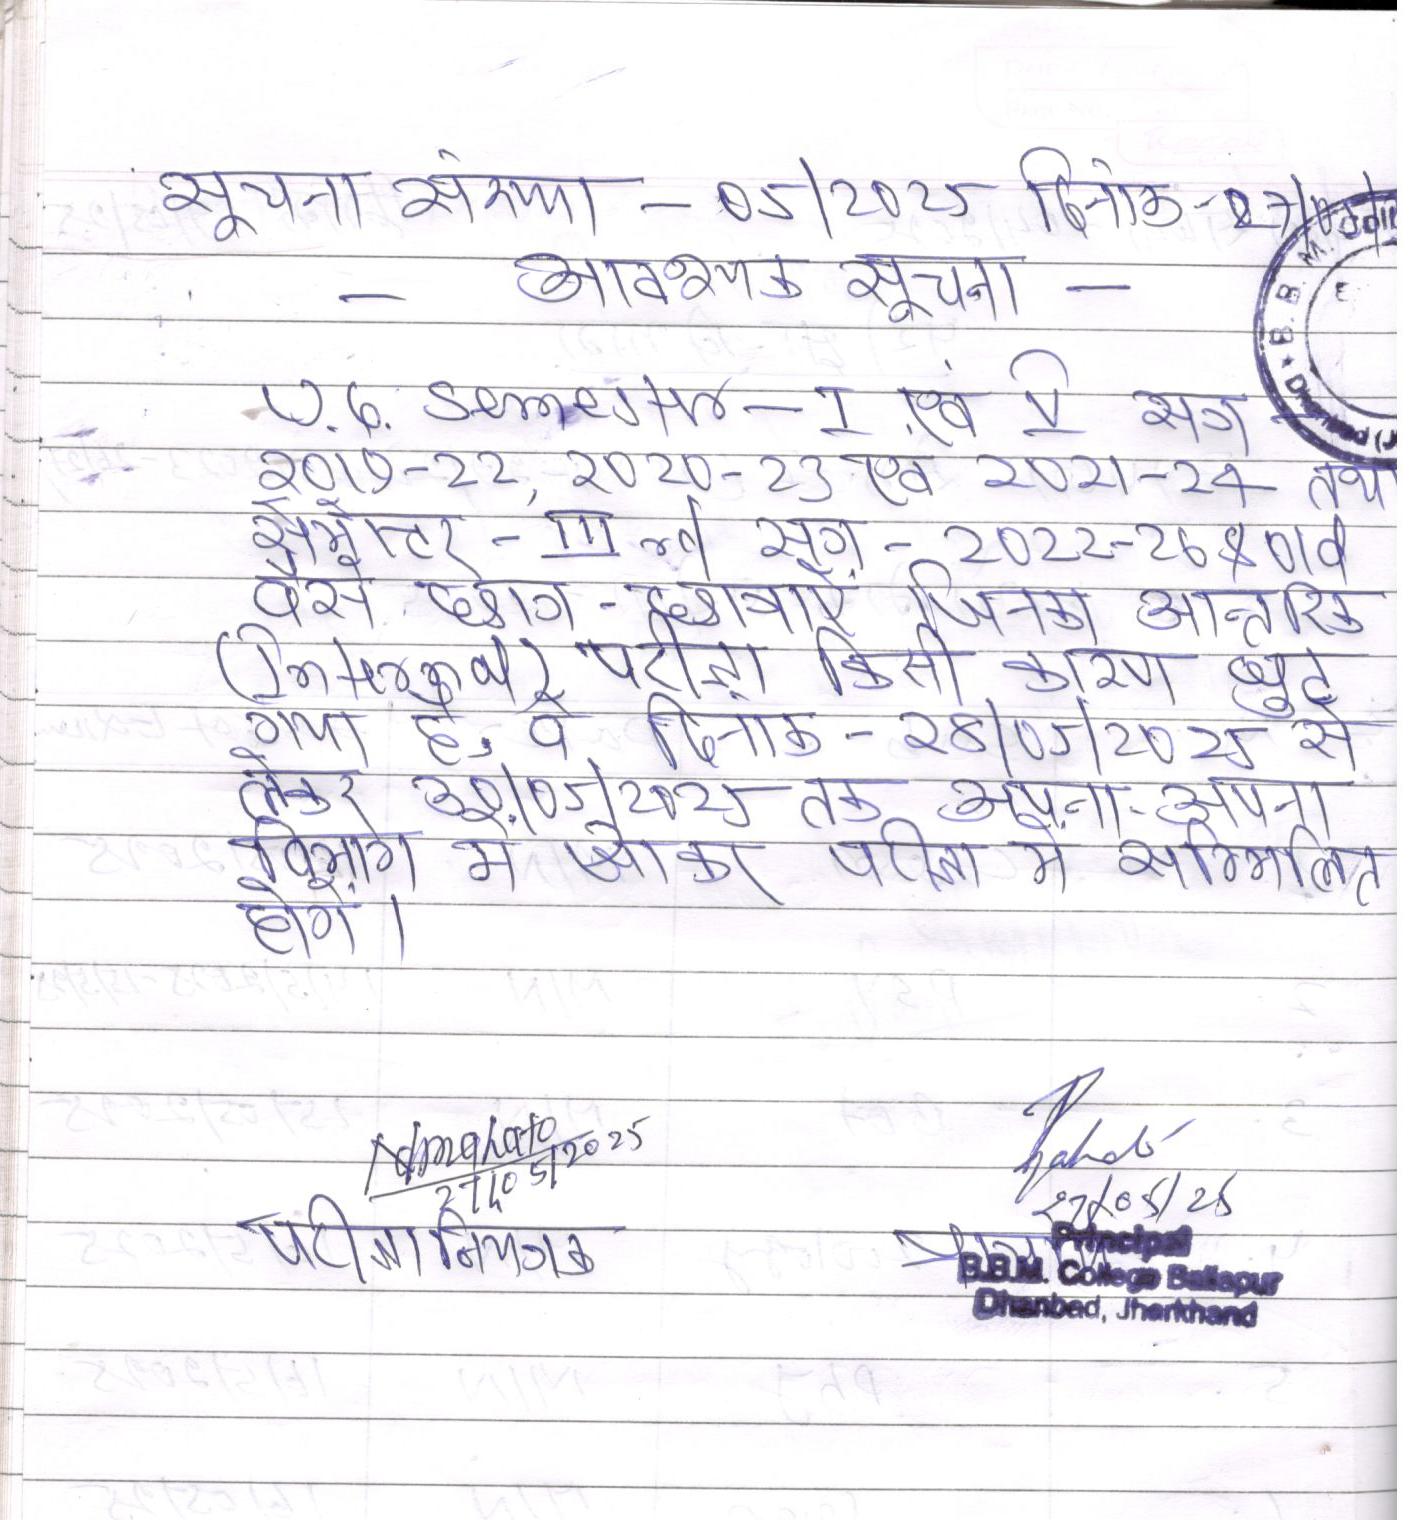 सूचना संख्या - 05/2025 दिनांक - 27/05
- आवश्यक सूचना -
U.G. Semester - I एवं V सत्र -
2019-22, 2020-23 एवं 2021-24 तथा
सेमेस्टर - III rd सत्र - 2022-26 के
वैसे छात्र - छात्राएँ जिनका आन्तरिक
(Internal) परीक्षा किसी कारण छुट
गया है, वे दिनांक - 28/05/2025 से
लेकर 30/05/2025 तक अपना-अपना
विभाग में आकर परीक्षा में सम्मिलित
होंगे ।
B.B.M. Colle
Dhanbad (J
Mahato
27/05/2025
27/05/25
परीक्षा नियंत्रक
Principal
B.B.M. College Baliapur
Dhanbad, Jharkhand